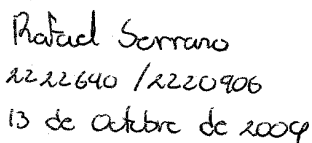 Rafael Serrano
2222640 / 2220906
13 de Octubre de 2009